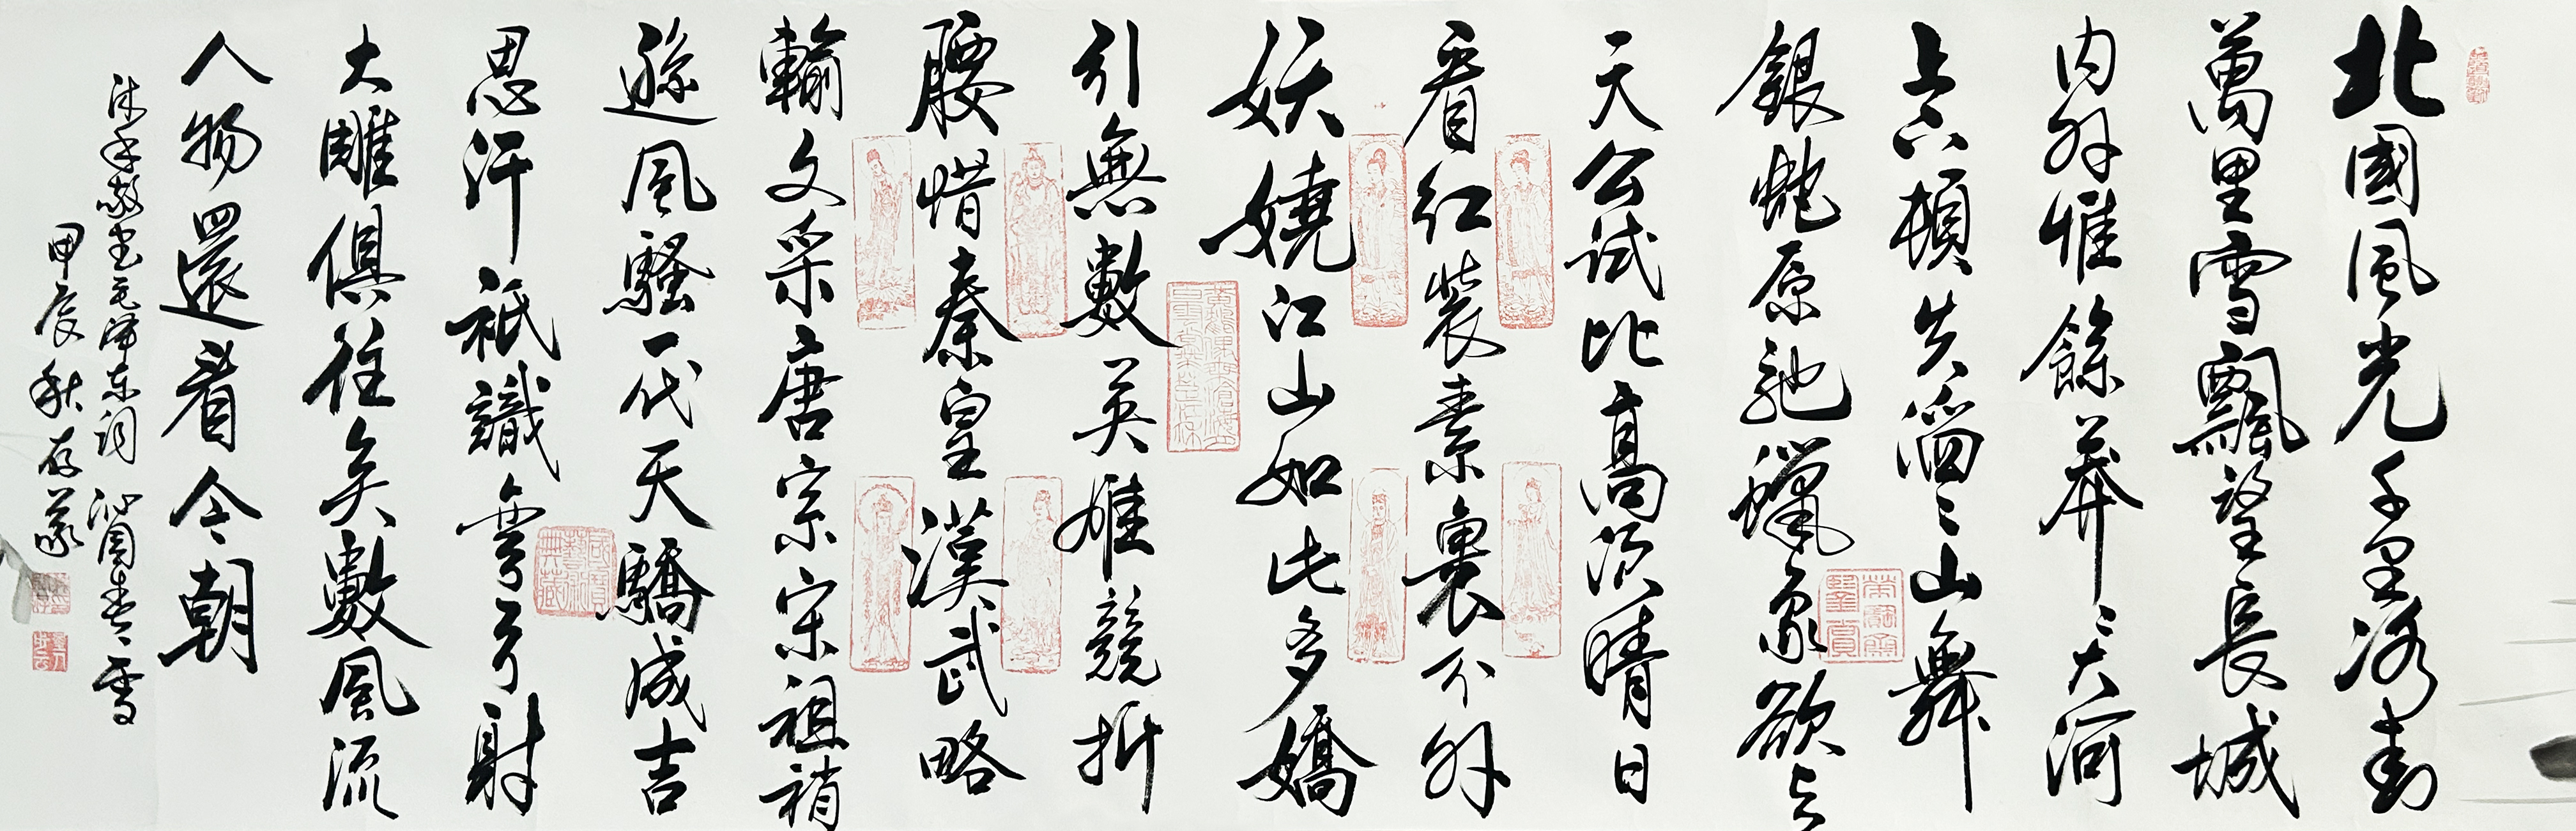 北國風光千里冰封
萬里雪飄望長城
内外惟餘莽〻大河
上下頓失滔〻山舞
銀蛇原馳蠟象欲与
天公試比高須晴日
看紅裝素裹分外
妖嬈江山如此多嬌
引無數英雄競折
腰惜秦皇漢武略
輸文采唐宗宋祖稍
遜風騷一代天驕成吉
思汗祇識彎弓射
大雕俱往矣數風流
人物還看今朝
沐手敬書毛澤东词沁園春、雪
甲辰秋存